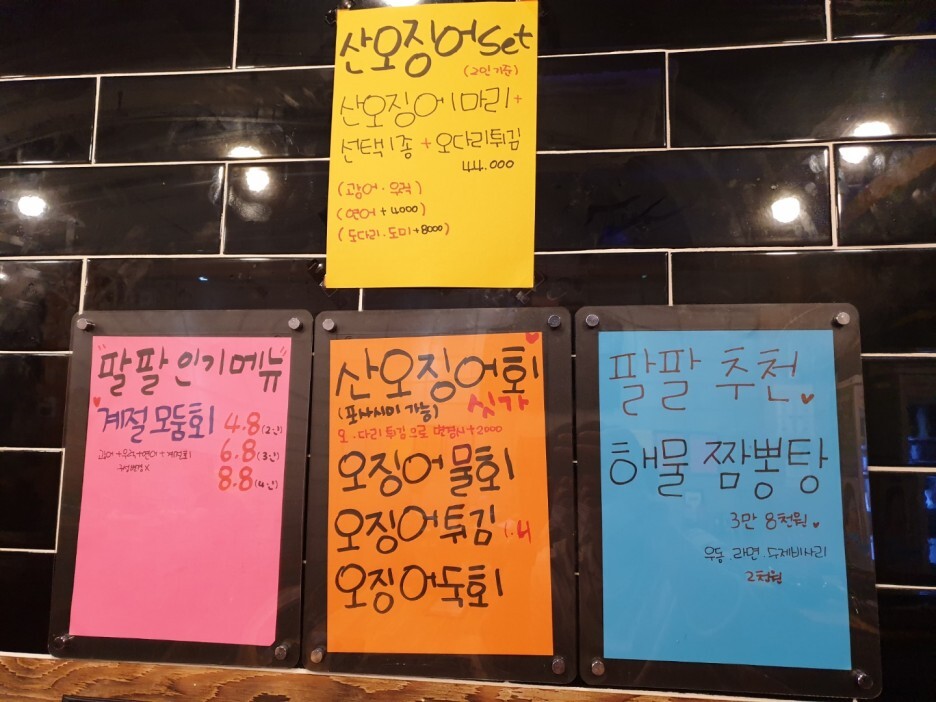 산오징어set
(2인기준)
산오징어1마리+
선택1종 + 오다리튀김
44.000
(광어·우럭)
(연어+4000)
(도다리·도미+8000)
"팔팔 인기메뉴"
계절모둠회 4.8(2인)
광어+우럭+연어+계절회
6.8(3인)
구성변경X
8.8(4인)
산오징어회
(포사시미 가능) 싯가
오·다리튀김으로 변경시+2000
오징어물회
오징어튀김 1.4
오징어숙회
팔팔 추천
해물짬뽕탕
3만 8천원
우동·라면·수제비사리
2천원